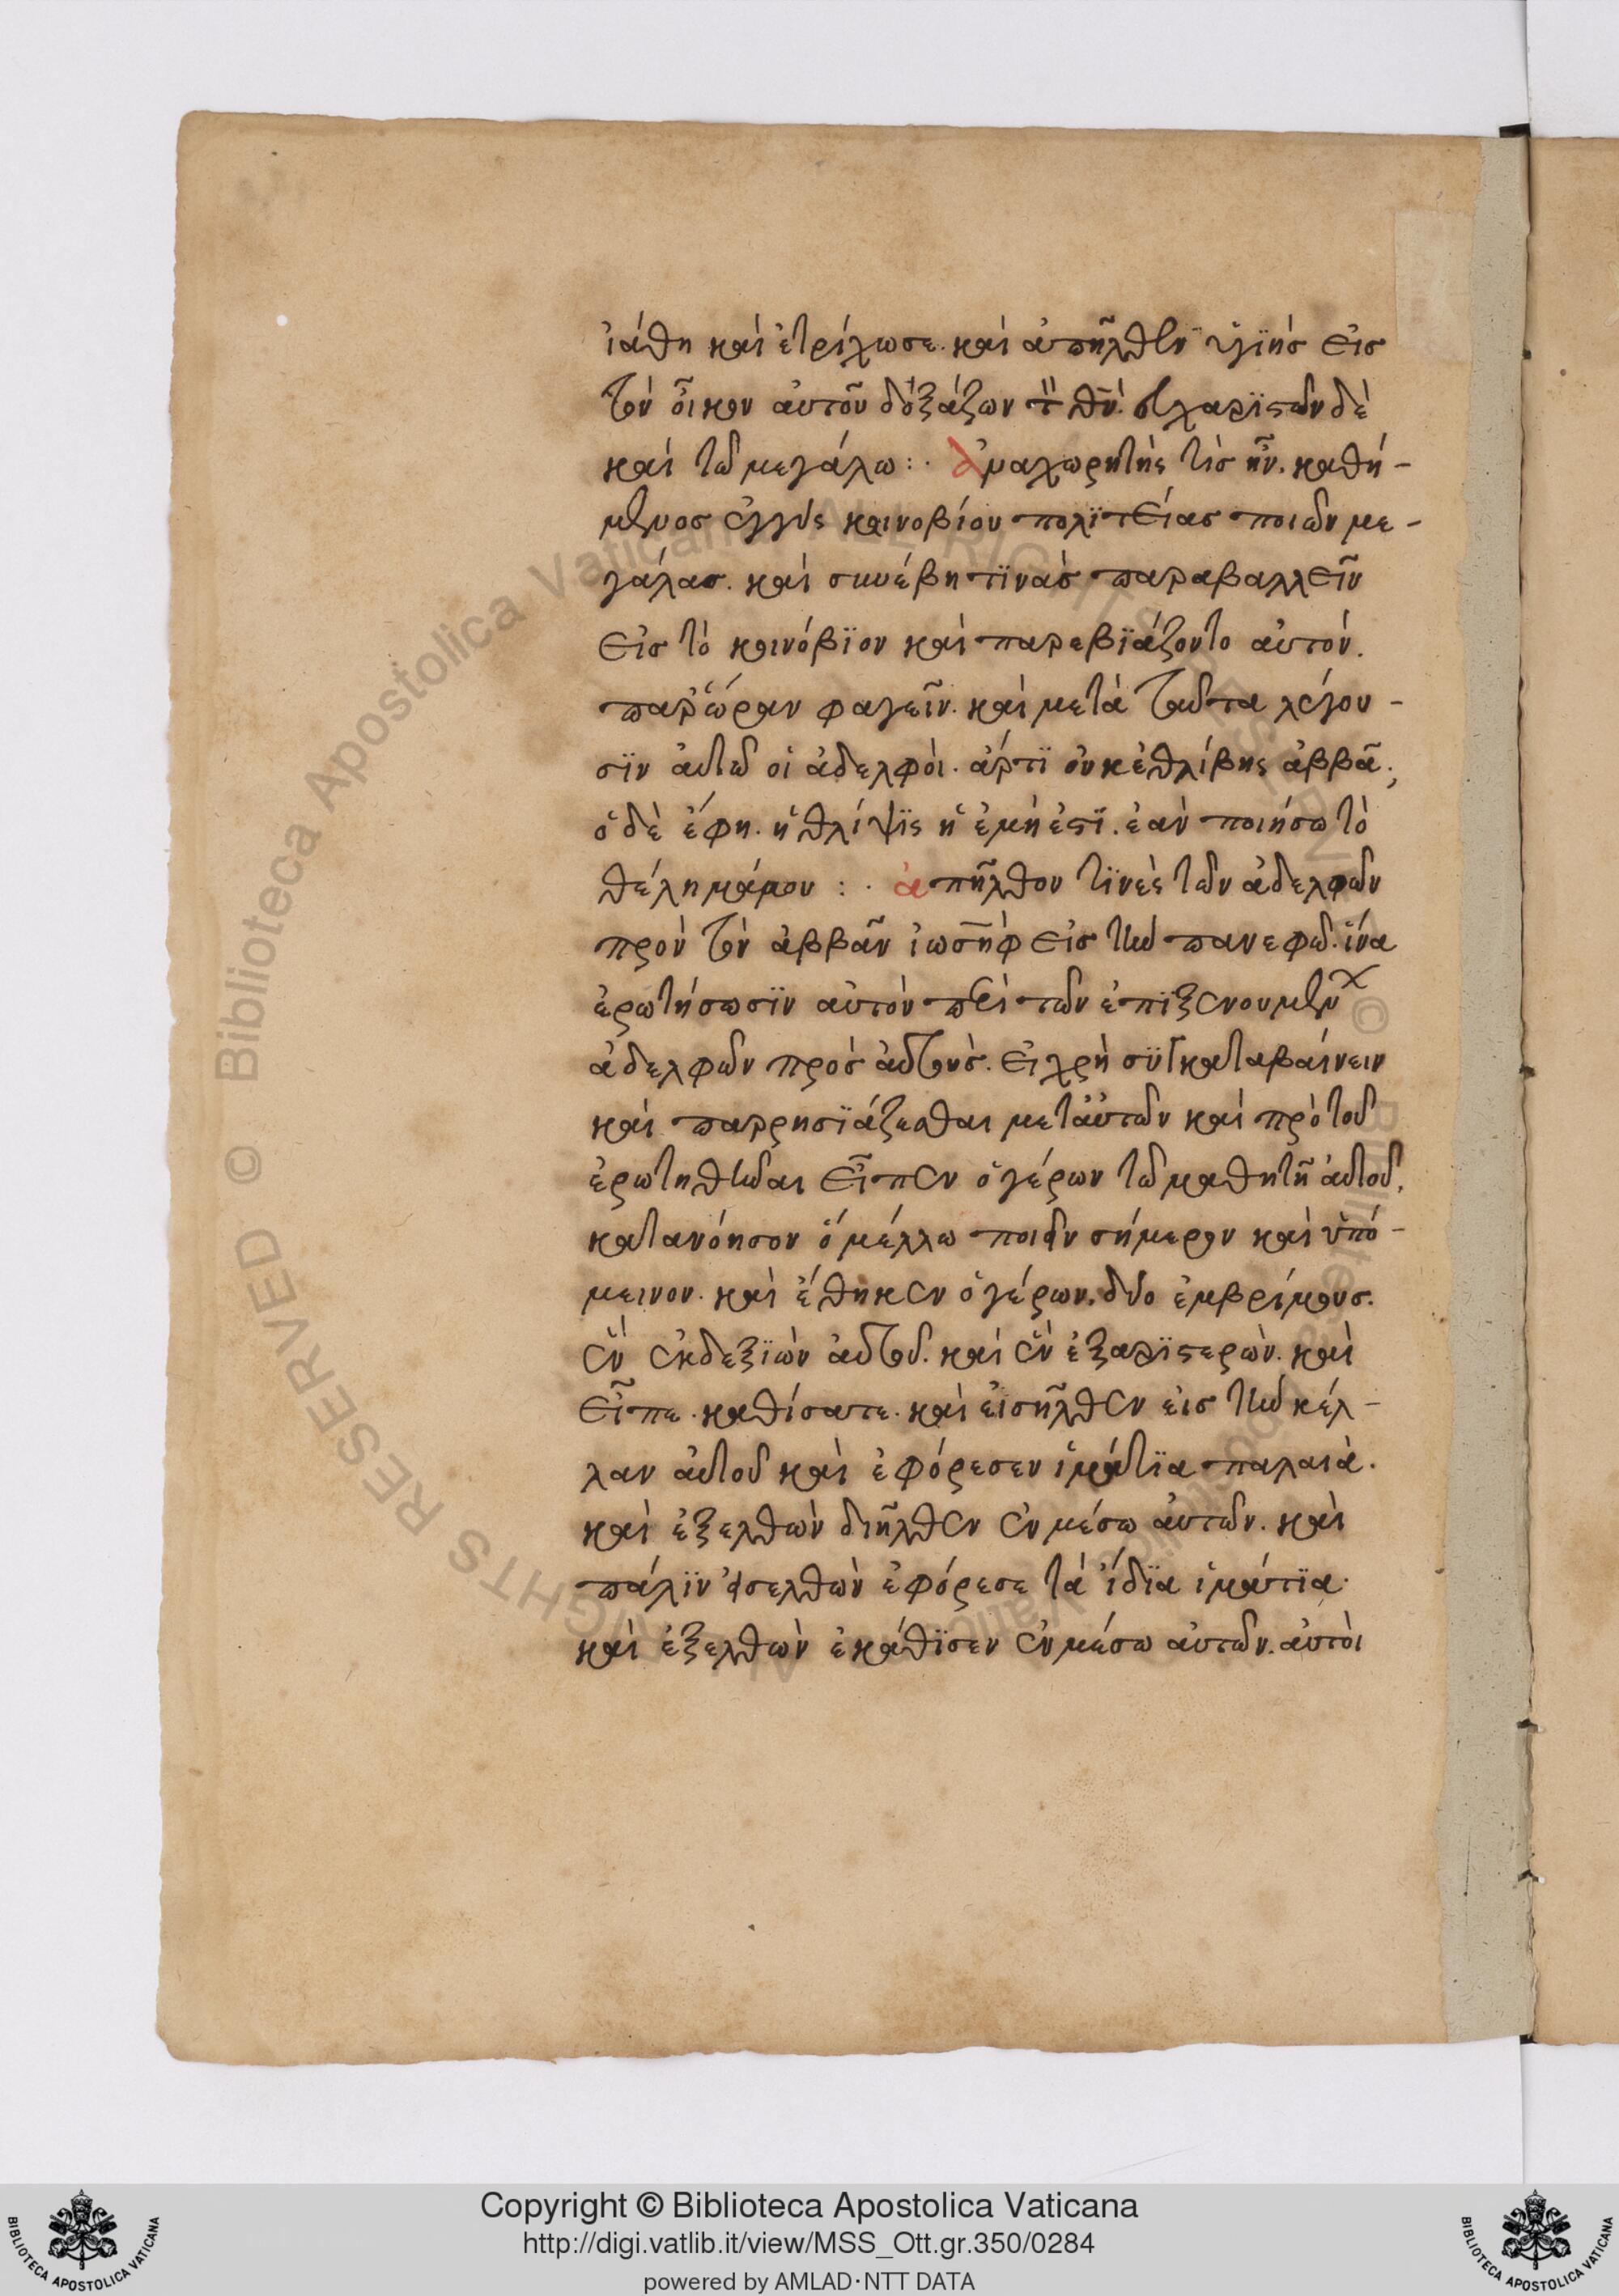 ἰάθη καὶ ἐτρίχωσε. καὶ ἀπῆλθεν ὑγιὴς εἰς
τὸν οἶκον αὐτοῦ δοξάζων τὸν θν̄. εὐχαριστῶν δὲ
καὶ τῶ μεγάλω :· ἀναχωρητής τις ἦν. καθή-
μενος ἐγγὺς κοινοβίου πολϊτείας ποιῶν με-
γάλας. καὶ συνέβη τϊνὰς παραβαλλεῖν
εἰς τὸ κοινόβϊον καὶ παρεβϊάζοντο αὐτόν.
παρ' ὥραν φαγεῖν. καὶ μετὰ ταῦτα λέγου-
σϊν αὐτῶ οἱ ἀδελφοὶ. ἄρτϊ οὐκ ἐθλίβης ἀββᾶ;
ὁ δὲ ἔφη. ἡ θλίψϊς ἡ ἐμὴ ἐστϊ. ἐὰν ποιήσω τὸ
θέλημά μου :· ἀπῆλθον τϊνὲς τῶν ἀδελφῶν
προν τὸν ἀββᾶν ἰωσὴφ εἰς τὴν πανεφώ. ἵνα
ἐρωτήσωσϊν αὐτὸν περὶ τῶν ἐπϊξενουμένων
ἀδελφῶν πρὸς αὐτοὺς. εἰ χρὴ συγκαταβαίνειν
καὶ παρρησϊάζεσθαι μετ' αὐτῶν καὶ πρὸ τοῦ
ἐρωτηθῆναι εἶπεν ὁ γέρων τῶ μαθητῆ αὐτοῦ.
κατανόησον ὃ μέλλω ποιεῖν σήμερον καὶ ὑπό-
μεινον. καὶ ἔθηκεν ὁ γέρων. δύο ἐμβρίμους.
ἓν ἐκ δεξϊῶν αὐτοῦ. καὶ ἓν ἐξ ἀρϊστερῶν. καὶ
εἶπε. καθίσατε. καὶ εἰσῆλθεν εἰς τὴν κέλ-
λαν αὐτοῦ καὶ ἐφόρεσεν ἱμάτϊα παλαιὰ.
καὶ ἐξελθὼν διῆλθεν ἐν μέσω αὐτῶν. καὶ
πάλϊν εἰσελθὼν ἐφόρεσε τὰ ἴδϊα ἱμάτϊα.
καὶ ἐξελθὼν ἐκάθϊσεν ἐν μέσω αὐτῶν. αὐτοὶ
Copyright © Biblioteca Apostolica Vaticana
http://digi.vatlib.it/view/MSS_Ott.gr.350/0284
powered by AMLAD·NTT DATA